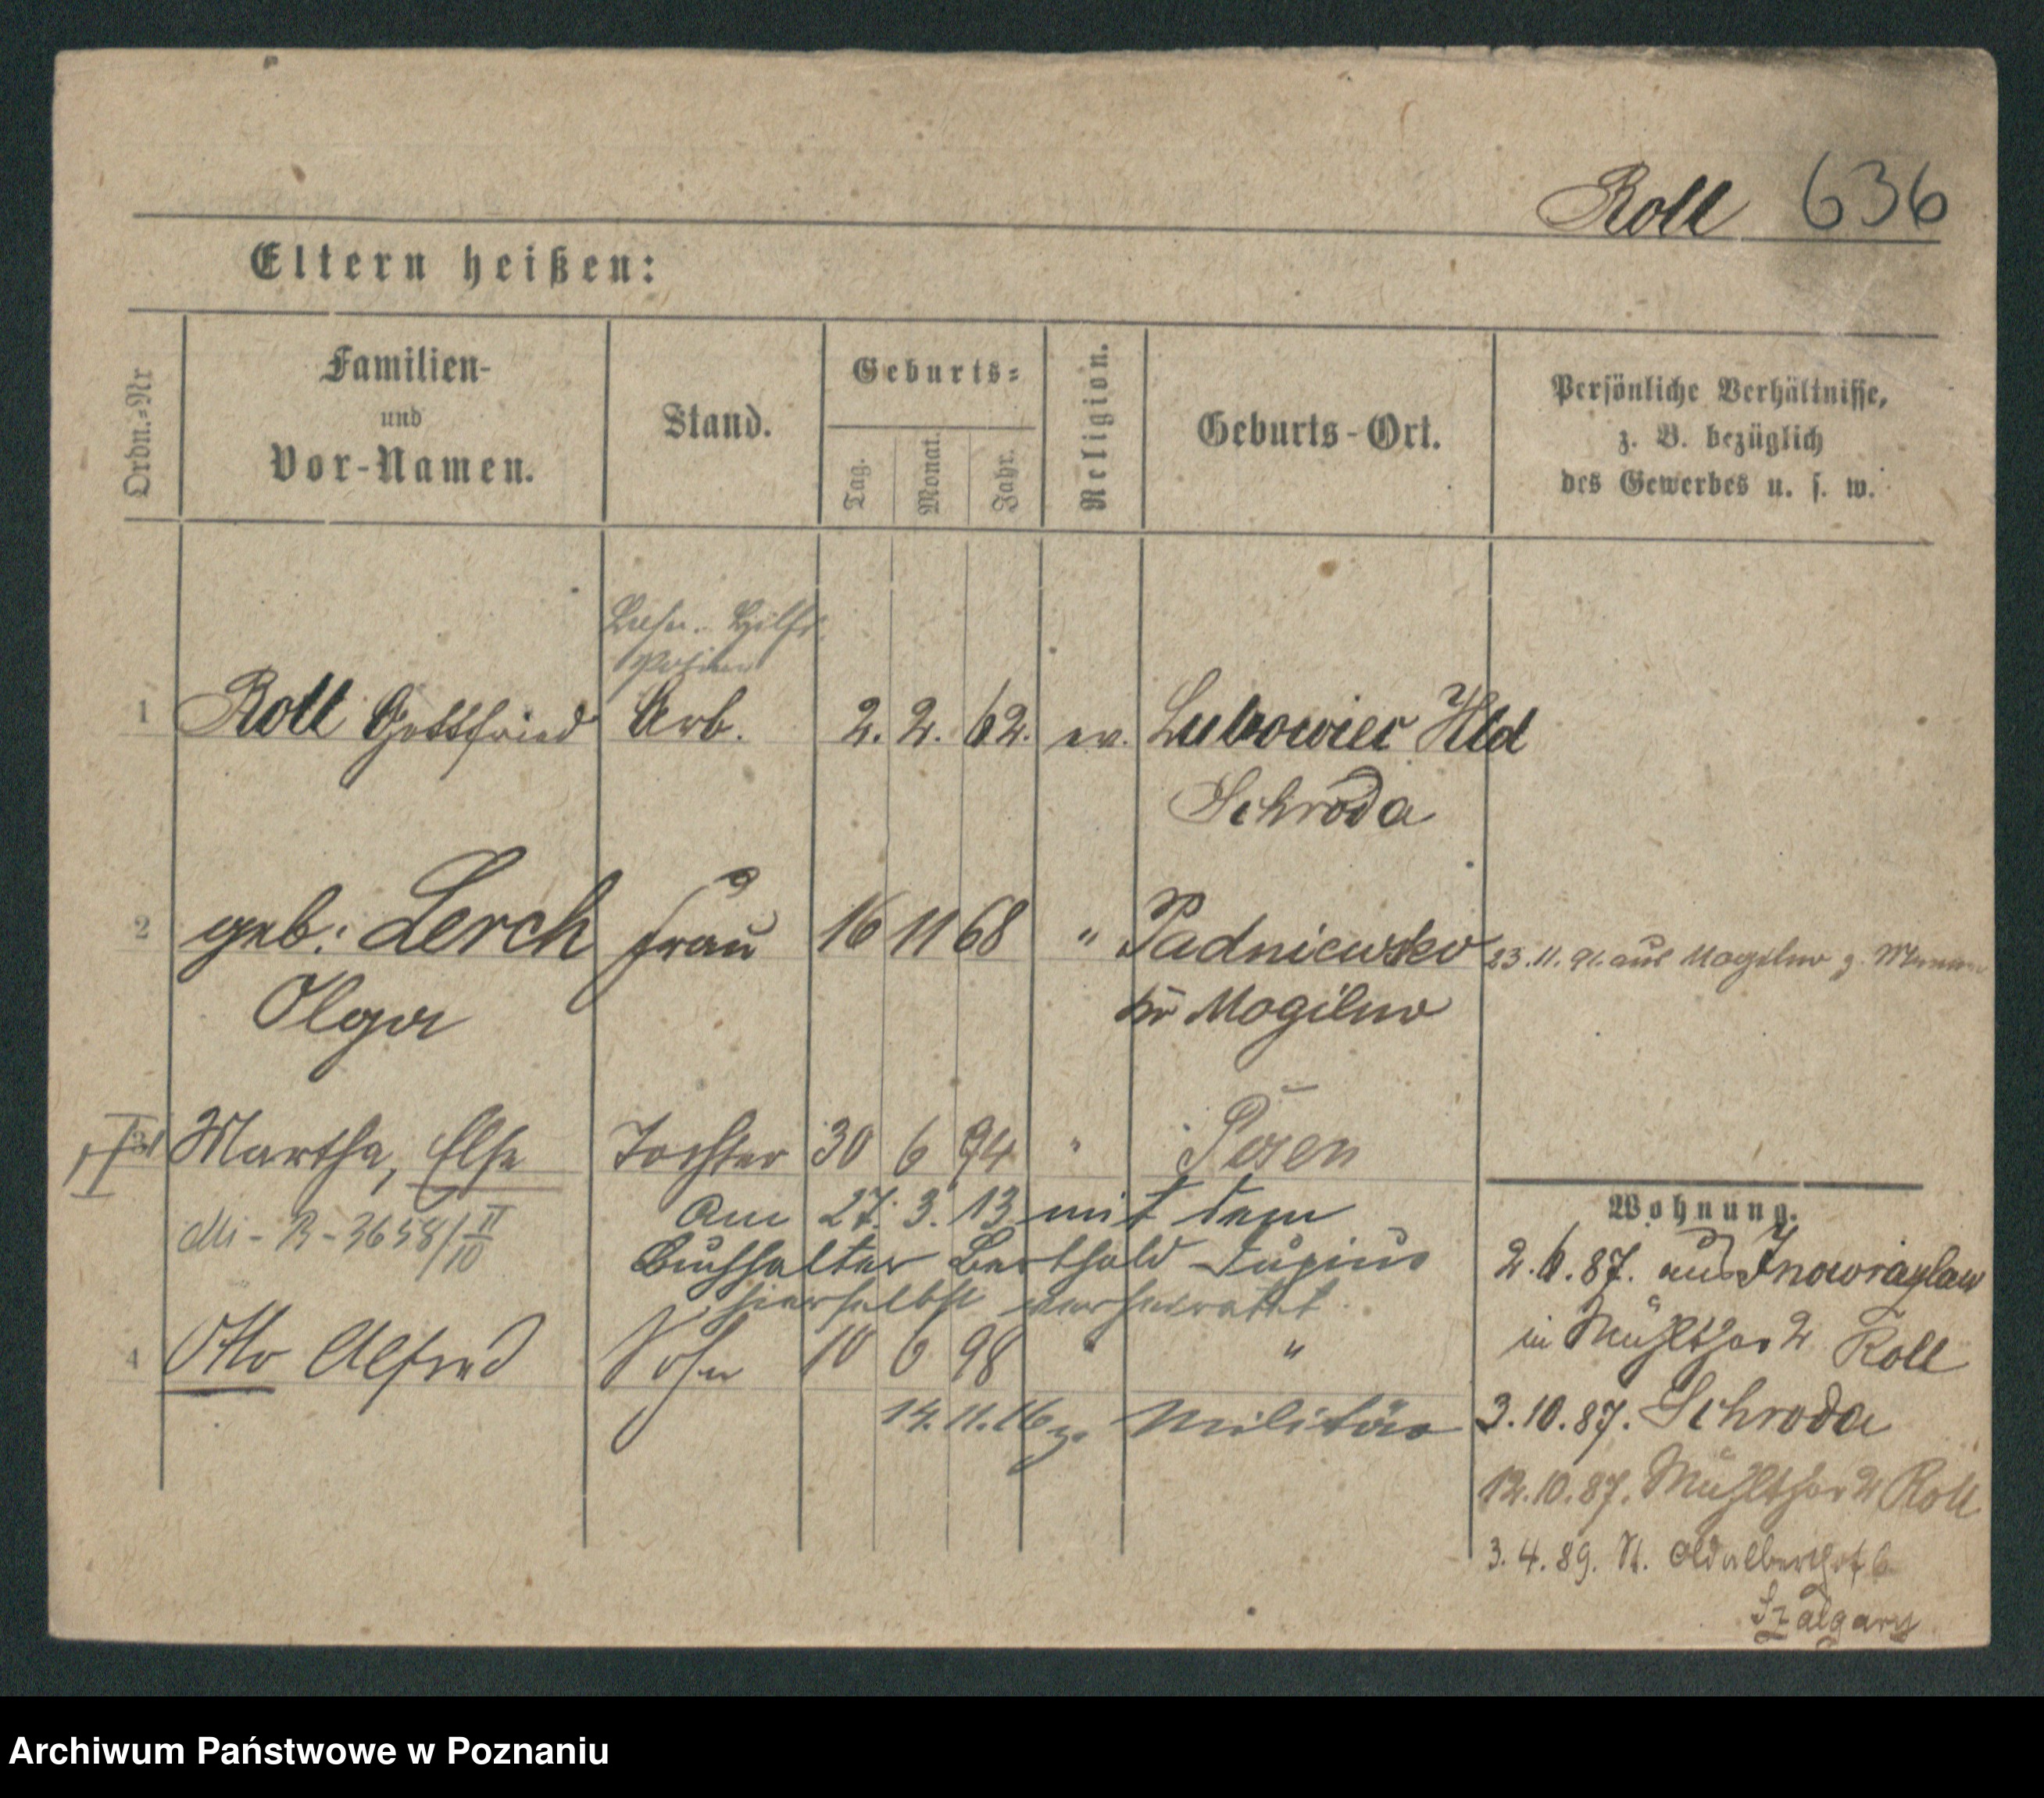 Roll 636
Eltern heißen:
Ordn.-Nr
Familien-
und
Vor-Namen.
Stand.
Geburts-
Tag.
Monat.
Jahr.
Religion.
Geburts-Ort.
Persönliche Verhältnisse,
z. B. bezüglich
des Gewerbes u. s. w.
Hilfs
1 Roll Gottfried Arb. 2. 2. 62. ev. Lubowiec Hld
Schroda
2 geb: Lerch Frau 16 11 68 " Padniewko 23.11.91. aus Mogilno z.
Olga Kr Mogilno
Martha, Else Tochter 30 6 94 " Posen
Am 27. 3. 13 mit dem
Mi-R-3658/II/10
Buchhalter Berthold
hierselbst verheiratet.
4 Otto Alfred Sohn 10 6 98 " "
14.11.16 z. Militär
Wohnung.
2.6.87. aus Inowrazlaw
in Mühlthor 2 Roll
3.10.87. Schroda
12.10.87. Mühlthor 2 Roll
3.4.89. St. 6
Szalgary
Archiwum Państwowe w Poznaniu